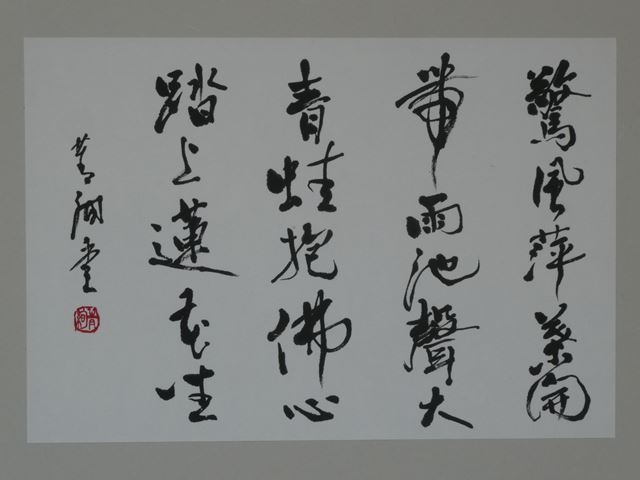 驚風萍葉開
帶雨池聲大
青蛙抱佛心
踏上蓮花坐